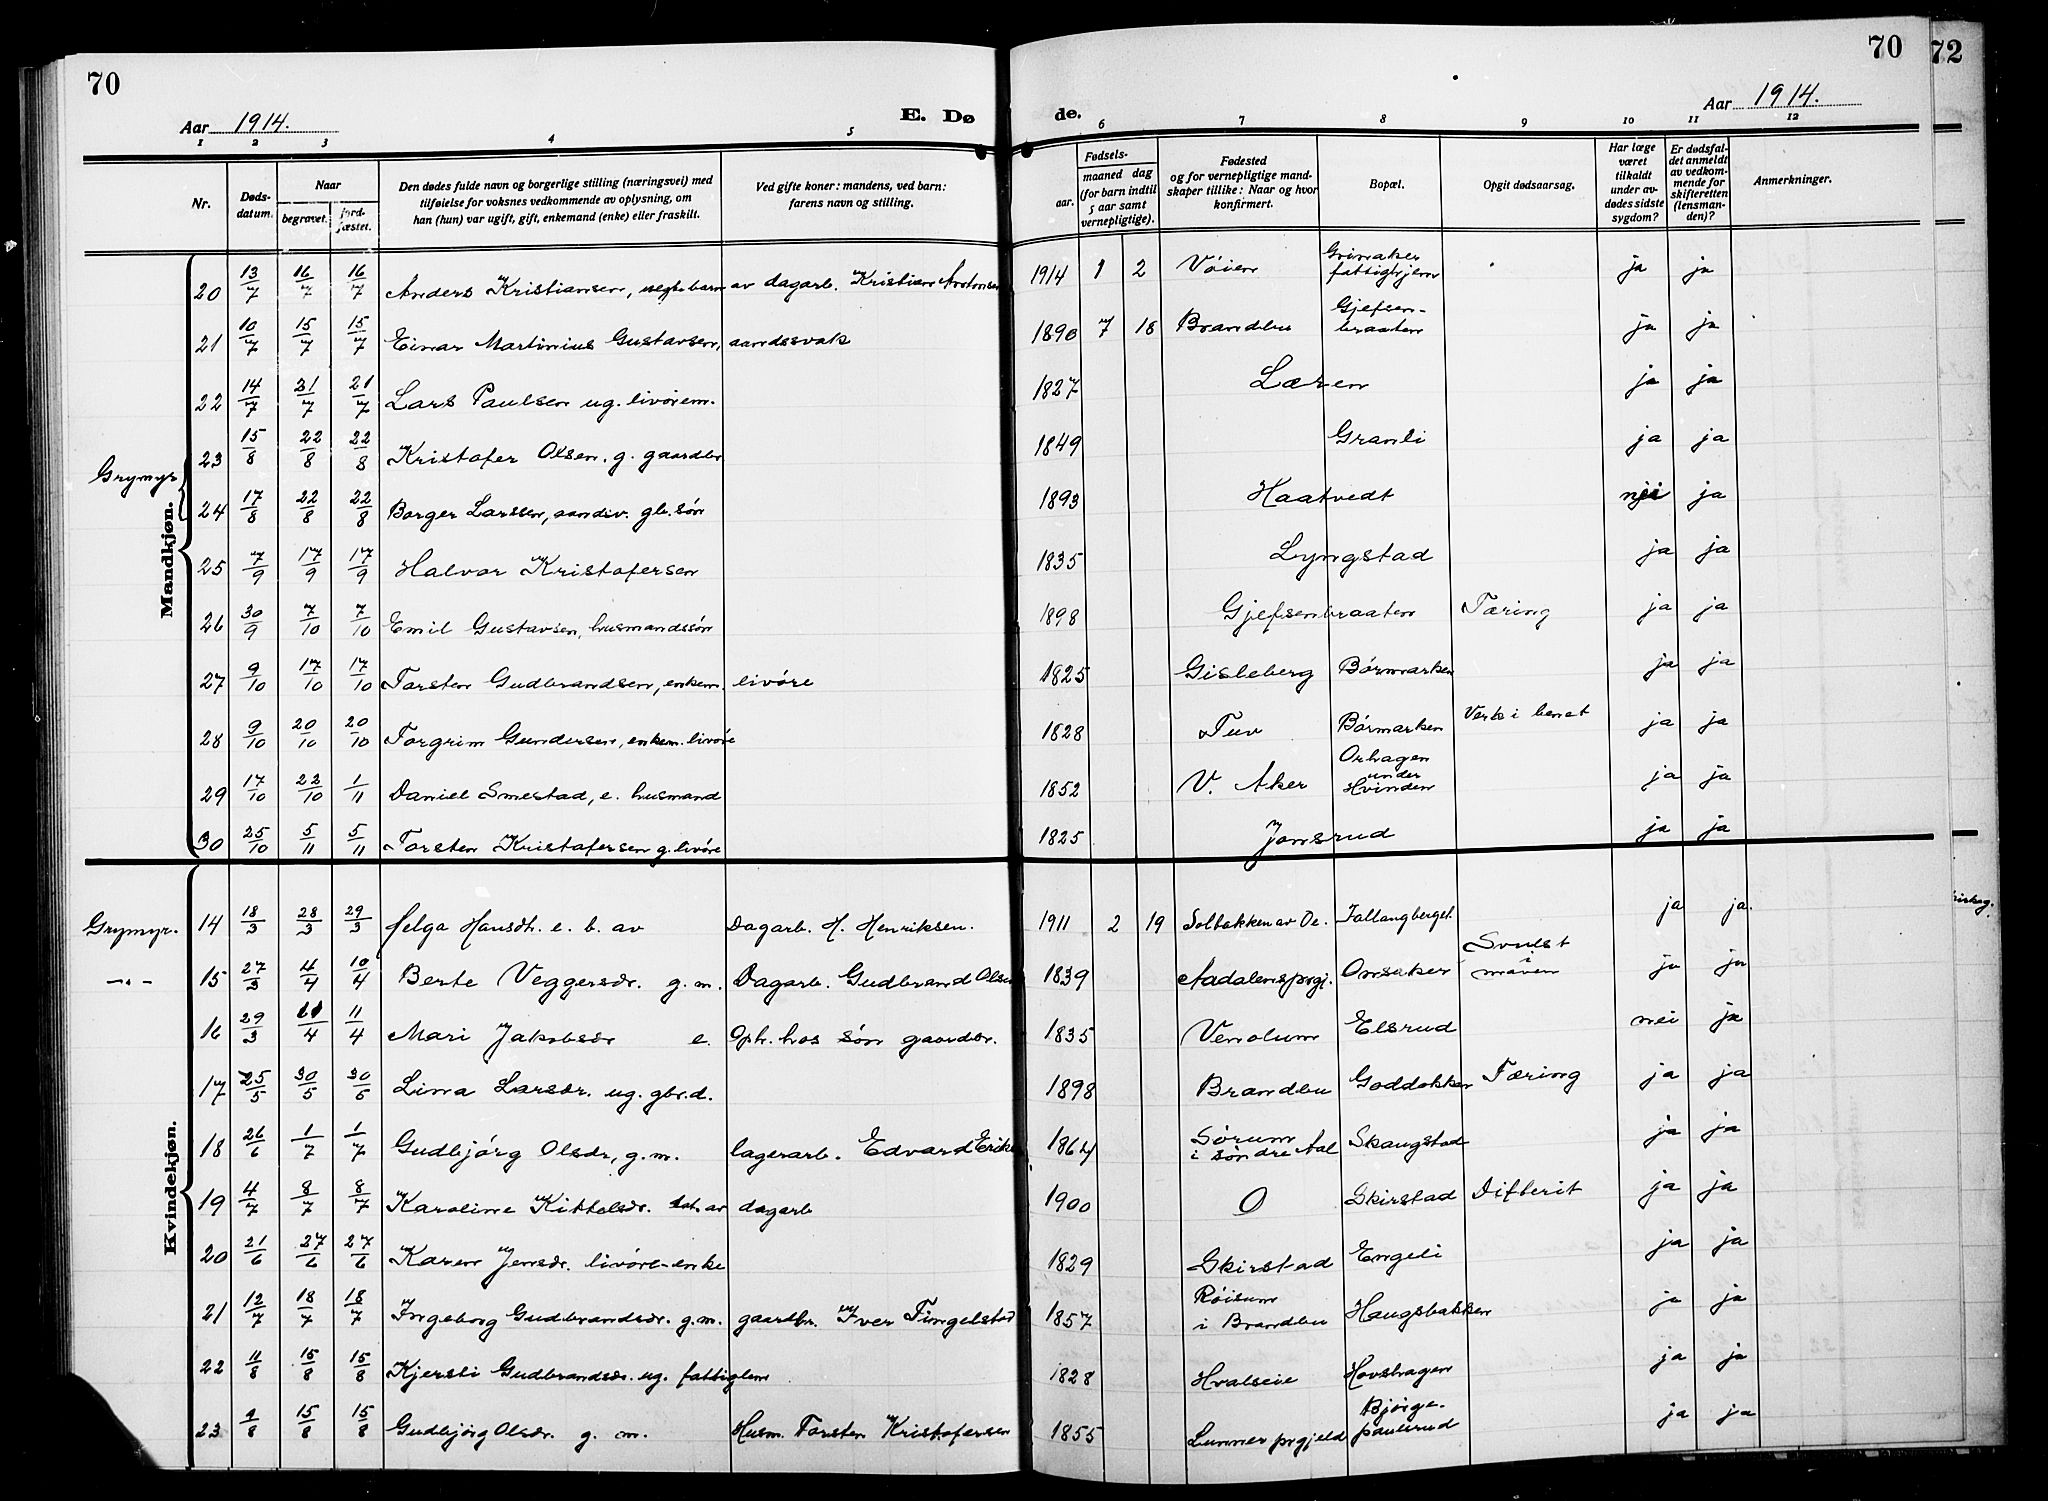 70
70
72
Aar 1914.
E. Dø
de.
Aar 1914.
1 2 3 4 5 6 7 8 9 10 11 12
Nr.
Døds-
datum.
Naar
begravet.
jord-
fæstet.
Den dødes fulde navn og borgerlige stilling (næringsvei) med
tilføielse for voksnes vedkommende av oplysning, om
han (hun) var ugift, gift, enkemand (enke) eller fraskilt.
Ved gifte koner: mandens, ved barn:
farens navn og stilling.
Fødsels-
aar.
maaned dag
(for barn indtil
5 aar samt
vernepligtige).
Fødested
og for vernepligtige mand-
skaper tillike: Naar og hvor
konfirmert.
Bopæl.
Opgit dødsaarsag.
Har læge
været
tilkaldt
under av-
dødes sidste
sygdom?
Er dødsfal-
det anmeldt
av vedkom-
mende for
skifteretten
(lensman-
den)?
Anmerkninger.
Mandkjøn.
20 13/7 16/7 16/7 Anders Kristiansen, uegte barn av dagarb. Kristian Antonsen 1914 1 2 Vöien Grinaker fattighjem ja ja
21 10/7 15/7 15/7 Einar Martinius Gustavsen, aandssvak 1890 7 18 Brandbu Gjefsen-braaten ja ja
22 14/7 21/7 21/7 Lars Paulsen ug. livörem. 1827 Læren ja ja
Grymyr 23 15/8 22/8 22/8 Kristofer Olsen. g. gaardbr 1849 Granli ja ja
24 17/8 22/8 22/8 Borger Larssen, aandsv. gb. sön 1893 Haatvedt nei ja
25 7/9 17/9 17/9 Halvor Kristofersen 1835 Lyngstad ja ja
26 30/9 7/10 7/10 Emil Gustavsen, husmandssön 1898 Gjefsenbraaten Tæring ja ja
27 9/10 17/10 17/10 Torsten Gudbrandsen, enkem. livöre 1825 Gisleberg Börmarken ja ja
28 9/10 20/10 20/10 Torgrim Gundersen, enkem. livöre 1828 Tuv Börmarken Verk i benet ja ja
29 17/10 22/10 1/11 Daniel Smestad, e. husmand 1852 V. Aker Orhagen under Hvinden ja ja
30 25/10 5/11 5/11 Torsten Kristofersen g. livöre 1825 Jonsrud ja ja
Kvindekjøn.
Grymyr. 14 18/3 28/3 29/3 Helga Hansdtr. e. b. av Dagarb. H. Henriksen. 1911 2 19 Solbakken av Oe. Tallangberget ja ja.
-"- 15 27/3 4/4 10/4 Berte Veggersdr. g. m. Dagarb. Gudbrand Olsen 1839 Aadalens prgj. Onsaker Svulst i maven ja ja
16 29/3 11/4 11/4 Mari Jakobsdr e. Oph. hos sön gaardbr. 1835 Venolum Elsrud nei ja
17 25/5 30/5 30/5 Lina Larsdr. ug. gbr. d. 1898 Brandbu Goddokken Tæring ja ja
18 26/6 1/7 1/7 Gudbjörg Olsdr, g. m. lagerarb. Edvard Erik 1864 Sörum i söndre Aal Skaugstad ja ja
19 4/7 8/7 8/7 Karoline Kittelsdr. dat. av dagarb 1900 O Skirstad Difterit ja ja
20 21/6 27/6 27/6 Karen Jensdr. livöre-enke 1829 Skirstad Engeli ja ja
21 12/7 18/7 18/7 Ingeborg Gudbrandsdr. g. m. gaardbr. Iver Tingelstad 1857 Röisum i Brandbu Haugsbakken ja ja
22 11/8 15/8 15/8 Kjersti Gudbrandsdr. ug. fattiglem 1828 Hvalseie Hovshagen ja ja
23 9/8 15/8 15/8 Gudbjörg Olsdr. g. m. Husm. Torsten Kristofersen 1855 Lunner prgjeld Bjørge-paulsrud ja ja